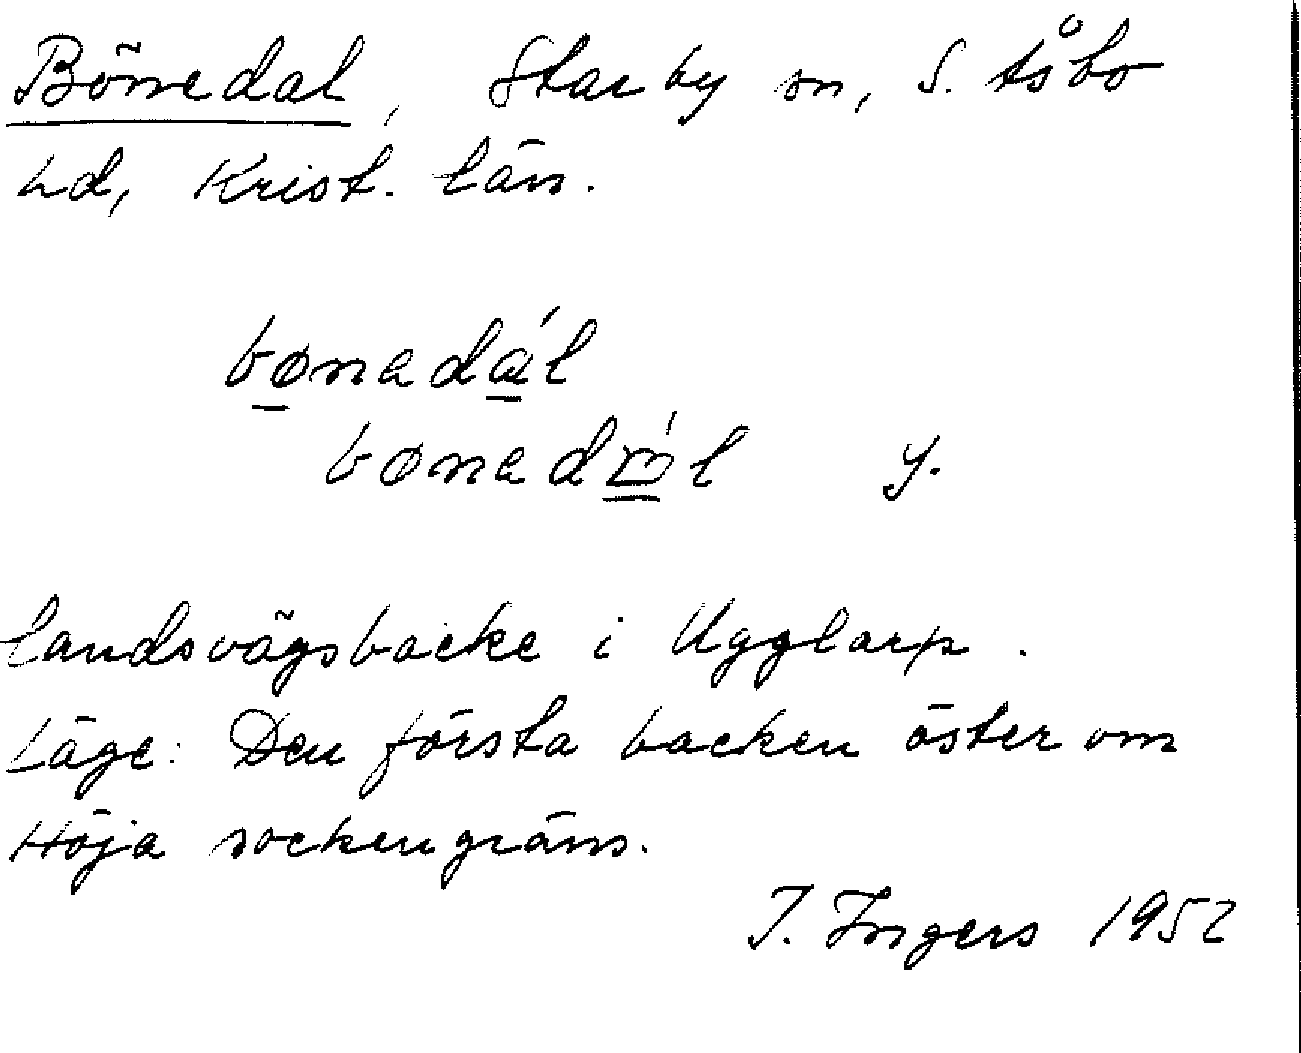 Bönedal, Starby sn, S. Åsbo
hd, Krist. län.
bønadál
y.
landsvägsbacke i Ugglarp.
Läge: Den första backen öster om
Höja sockengräns.
I. Ingers 1952